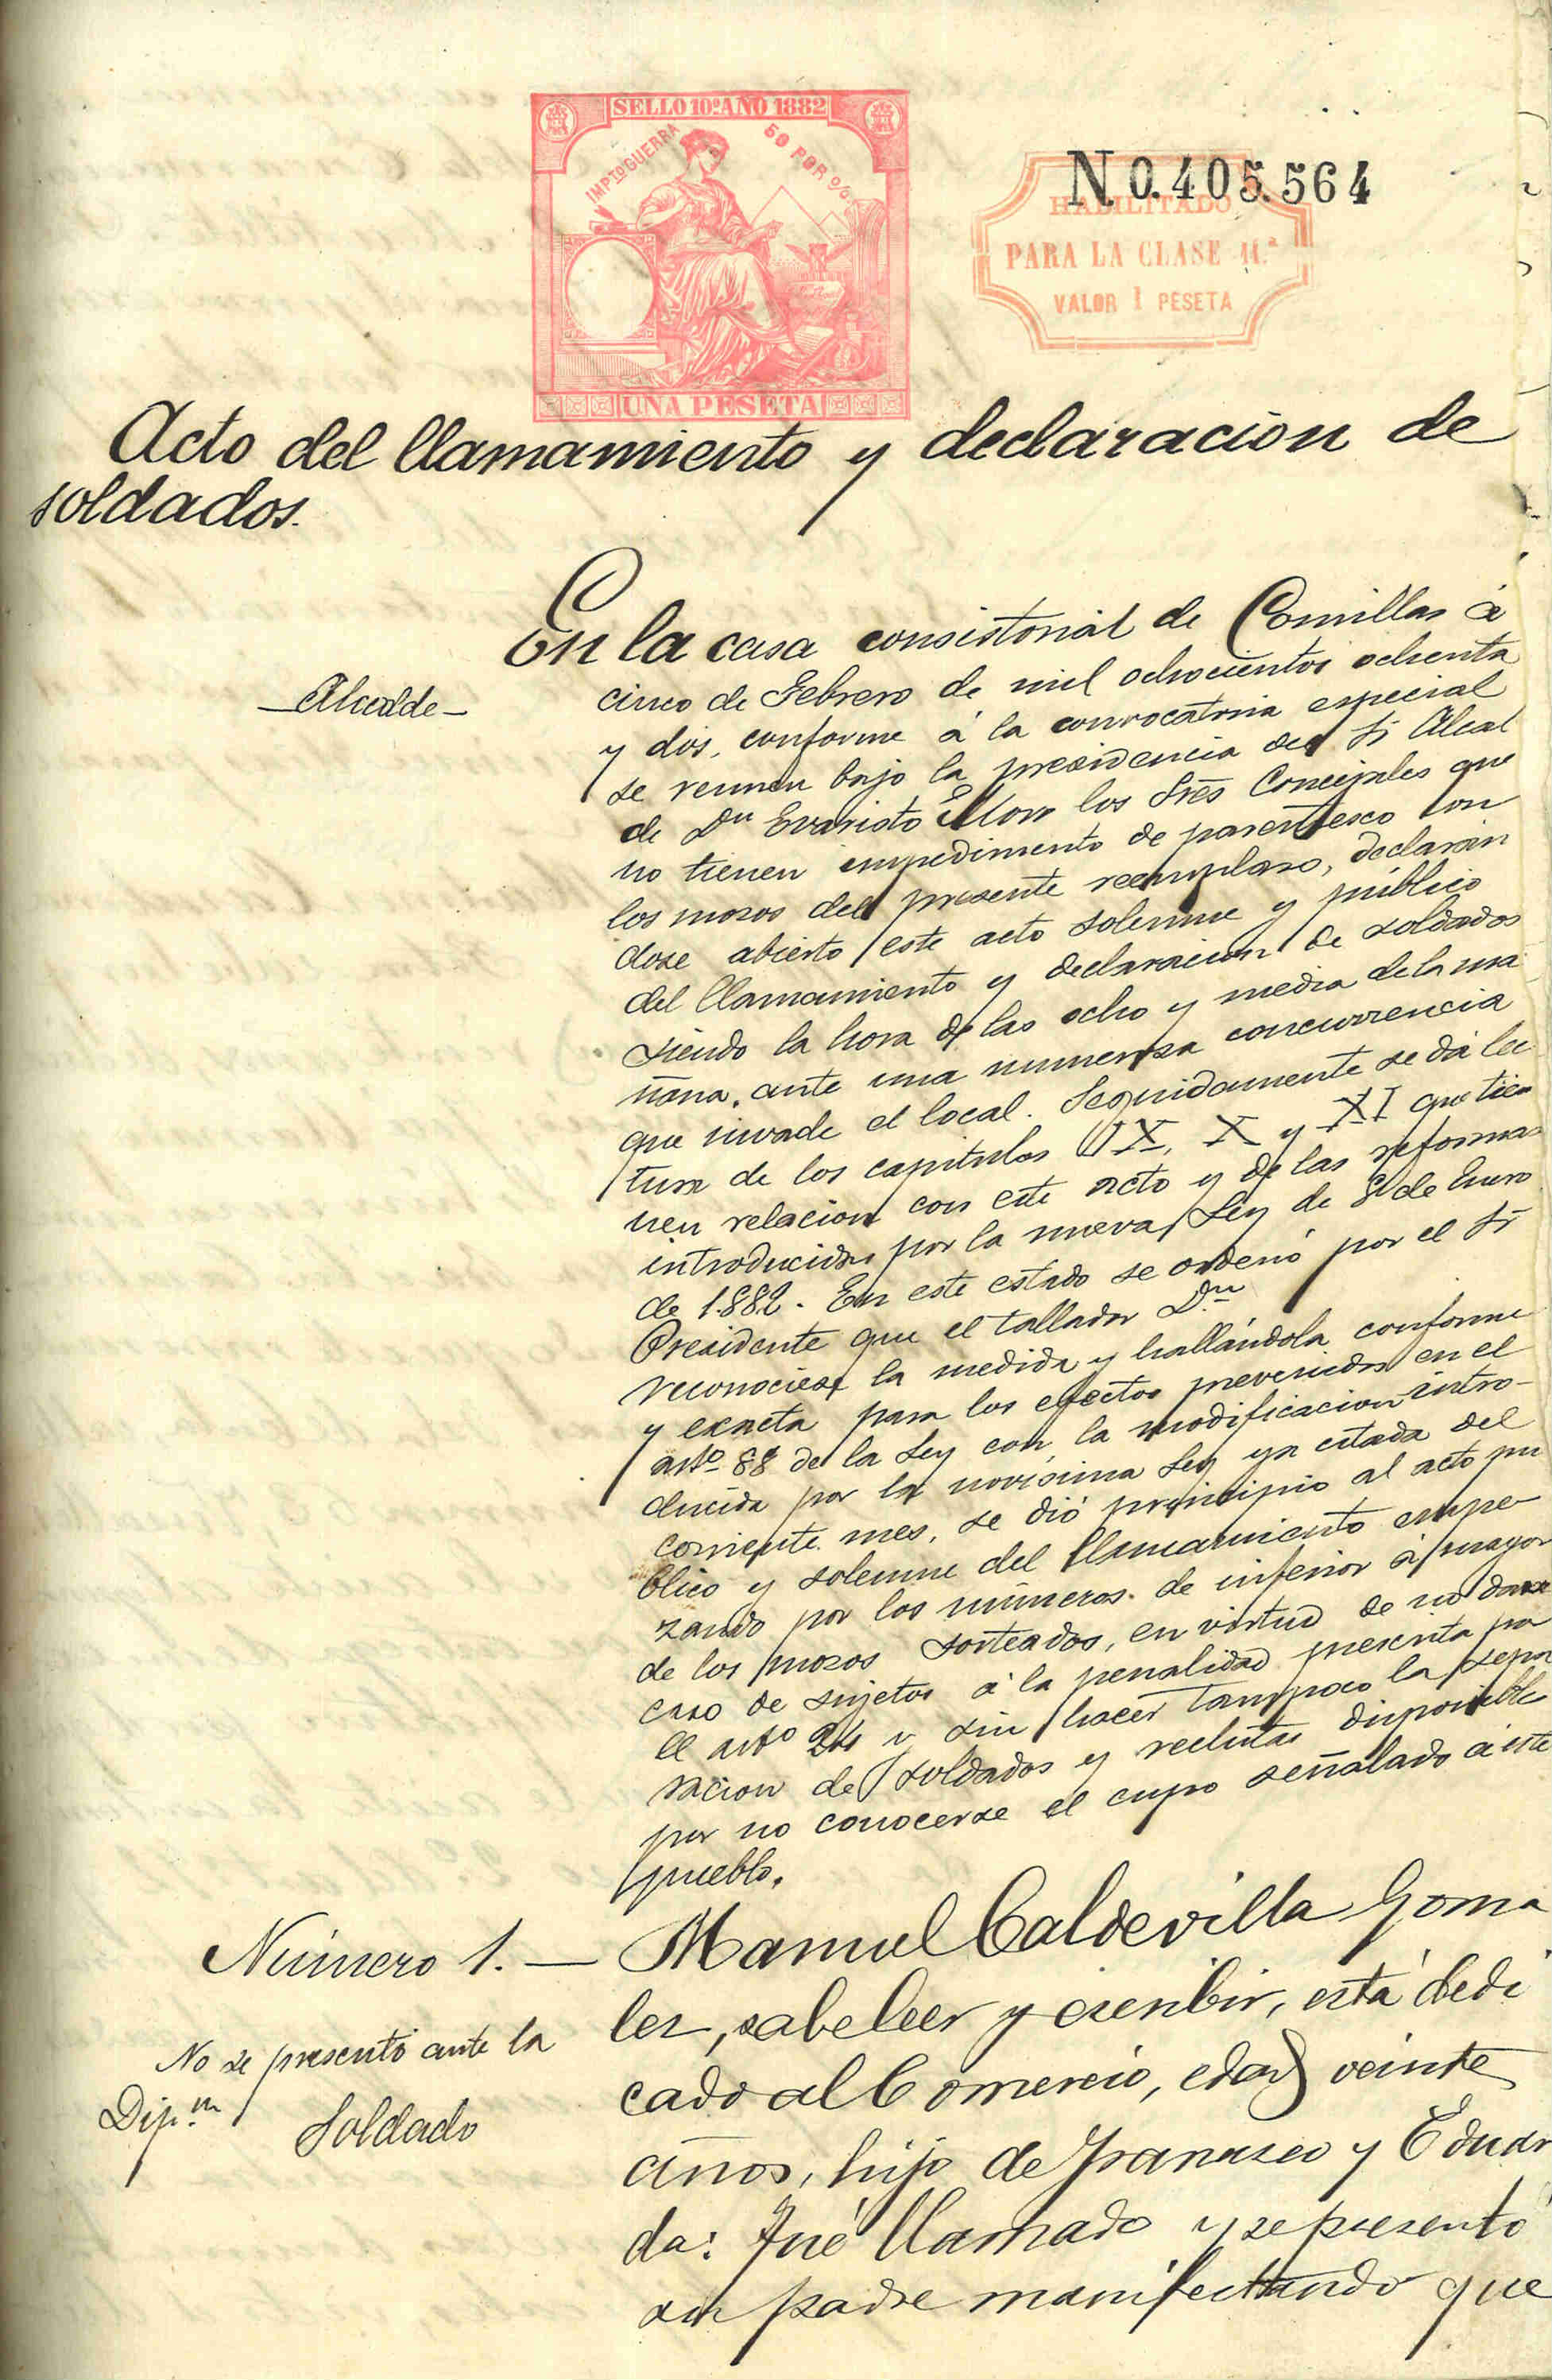 SELLO 10º AÑO 1882
IMPTO GUERRA 50 POR %
UNA PESETA
N 0.405.564
HABILITADO
PARA LA CLASE 11.ª
VALOR 1 PESETA
Acto del llamamiento y declaracion de
soldados.
En la casa consistorial de Comillas á
Alcalde
cinco de Febrero de mil ochocientos ochenta
y dos, conforme á la convocatoria especial
se reunen bajo la presidencia del Sr Alcal
de Dn Evaristo los Sres Concejales que
no tienen impedimento de parentesco con
los mozos del presente reemplazo, declarán
dose abierto este acto solemne y público
del llamamiento y declaracion de soldados
siendo la hora de las ocho y media de la ma
ñana, ante una numerosa concurrencia
que invade el local. Seguidamente se dá lec
tura de los capitulos IX, X y XI que tie
nen relacion con este acto y de las reformas
introducidas por la nueva Ley de 8 de Enero
de 1.882. En este estado se ordenó por el Sr
Presidente que el tallador Dn
reconociese la medida y hallándola conforme
y exacta para los efectos prevenidos en el
arto 88 de la Ley con la modificacion intro-
ducida por la novísima Ley ya citada del
corriente mes, se dió principio al acto pu
blico y solemne del llamamiento empe
zando por los números de inferior á mayor
de los mozos sorteados, en virtud de no darse
caso de sujetos á la penalidad prescrita por
el arto 24 y sin hacer tampoco la sepa
racion de soldados y reclutas disponibles
por no conocerse el cupo señalado á este
pueblo.
Número 1. — Manuel Caldevilla Gonza
lez, sabe leer y escribir, está dedi
No se presentó ante la
cado al Comercio, edad veinte
Dipn Soldado
años, hijo de Francisco y Eduar
da: Fué llamado y se presentó
su padre manifestando que